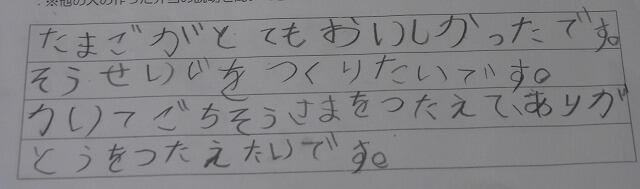 たまごがとてもおいしかったです。
そうせいじをつくりたいです。
かいてごちそうさまをつたえて、ありが
とうをつたえたいです。